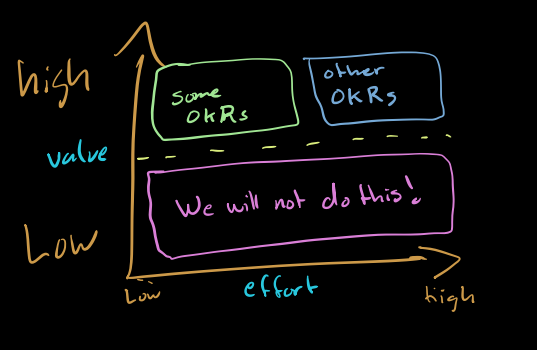 high
some
OKRs
other
OKRs
value
We will not do this!
Low
Low
effort
high